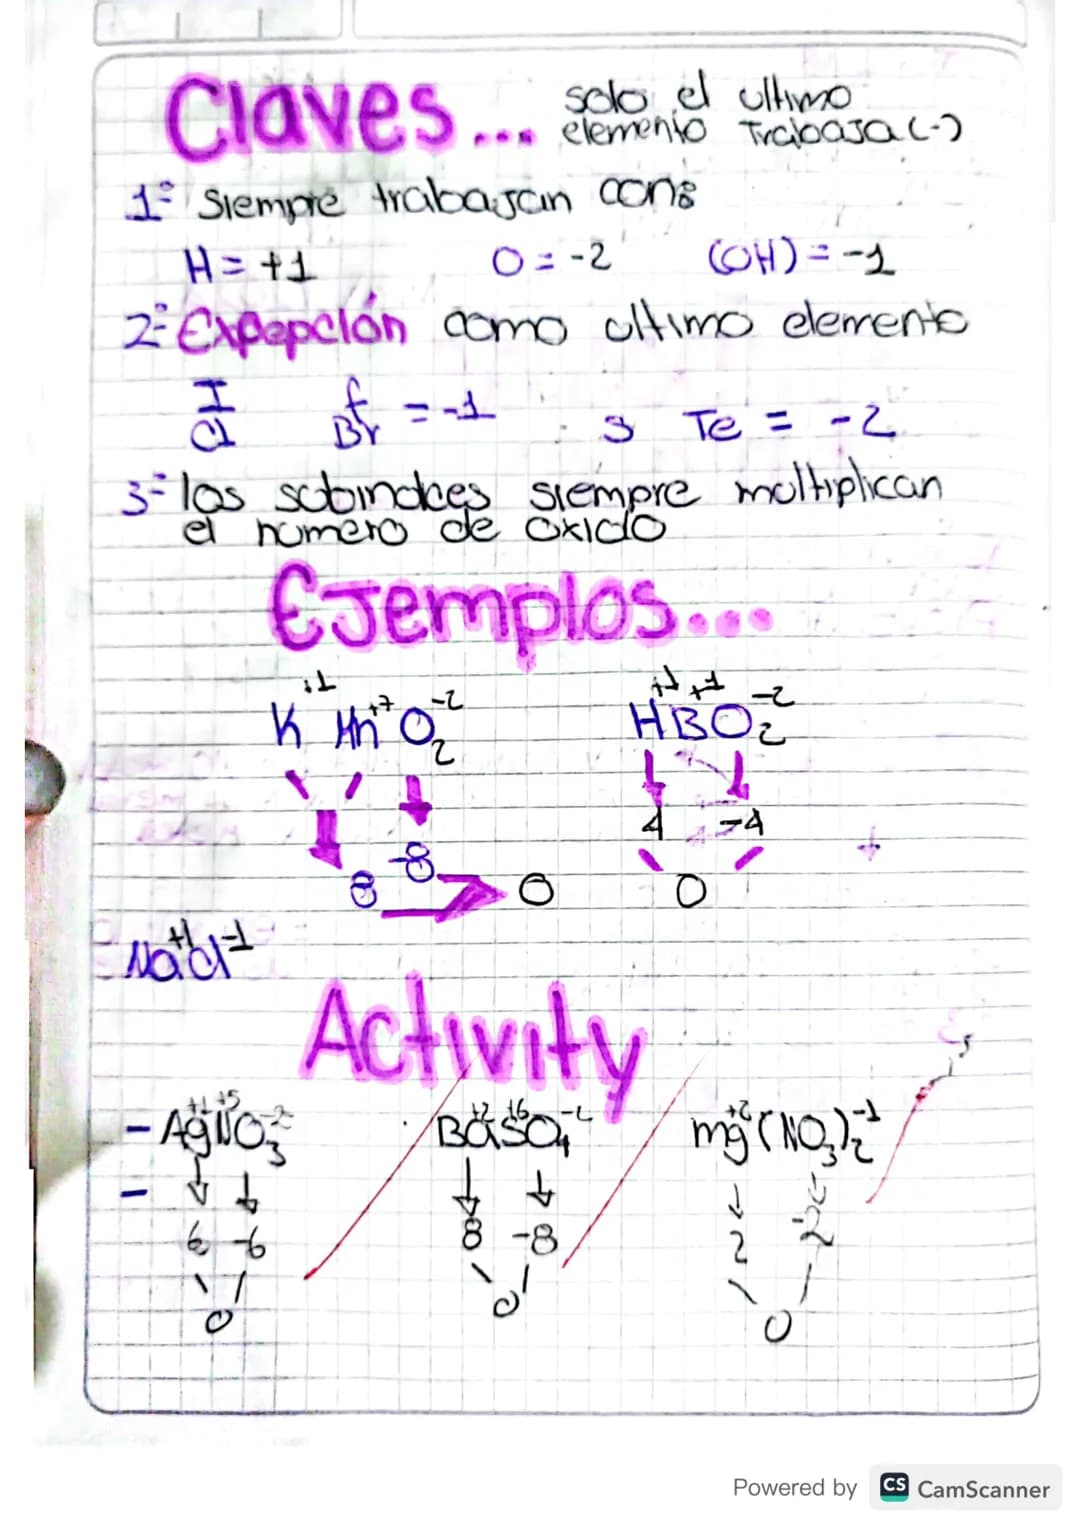 Claves... solo el ultimo
elemento Trabaja (-)
1º Siempre trabajan con:
H = +1 O = -2 (OH) = -1
2º Expepción como ultimo elemento
I f = -1 S Te = -2
Cl Br
3º los subindices siempre multiplican
el numero de oxido
Ejemplos...
K⁺¹ Mn⁺⁷ O₂⁻² H⁺¹B⁺¹O₂⁻²
4 -4
8 -8 0 0
Na⁺¹Cl⁻¹
Activity
- Ag⁺¹N⁺⁵O₃⁻² Ba⁺²S⁺⁶O₄⁻² mg⁺²(NO₃)₂⁻¹
-
6 -6 8 -8 2 -2
0 0 0
Powered by CS CamScanner